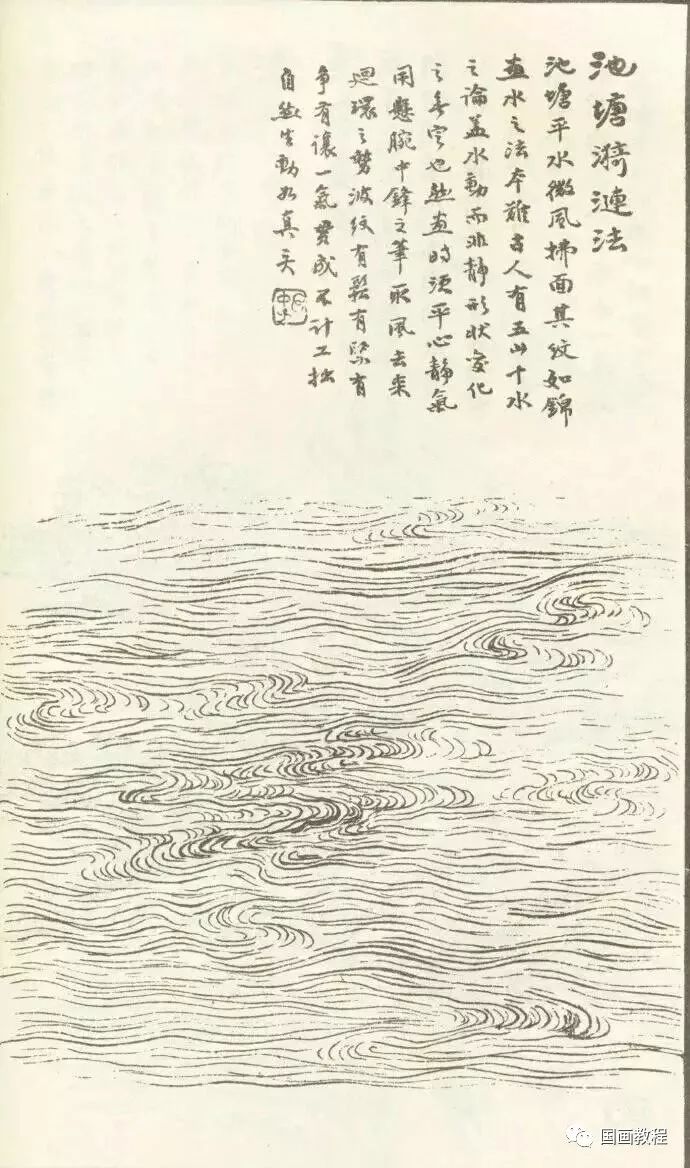 池塘漪漣法
池塘平水微风拂面其纹如錦
畫水之法本難古人有五山十水
之論盖水動而非静形状变化
之無定也然畫时须平心静氣
用懸腕中鋒之筆取風去来
迴環之势波纹有鬆有緊有
争有讓一氣贯成不计工拙
自然生動如真矣
国画教程